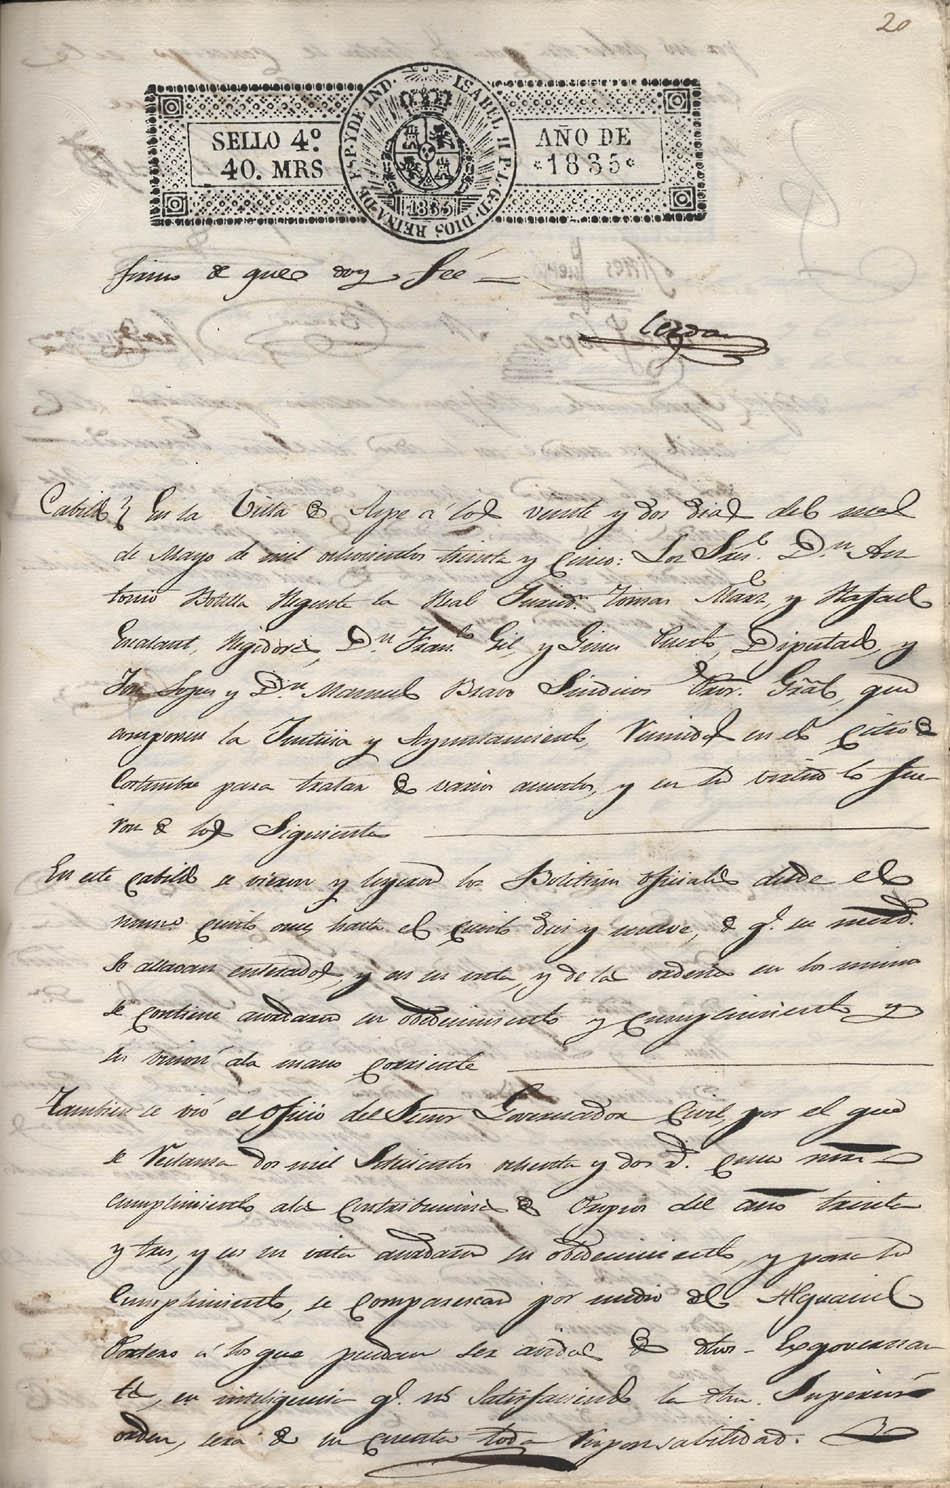 20
SELLO 4º
40. MRS
ISABEL II P. L. G. D. DIOS REINA DE ESP. Y DE IND.
1835
AÑO DE
1835
firmo de que doy fée
Cerdan
Cabildo
En la Villa de Aspe á los veinte y dos dias del mes
de Mayo de mil ochocientos treinta y cinco: Los Sres. Dn. An
tonio Botella Regente la Real Juridn. Tomas Marz, y Rafael
Regidores, Dn. Franco. Gil, y Gines Puerto, Diputados, y
José Lopez y Dn. Manuel Bravo Sindicos Procr. Gral, que
componen la Justicia y Ayuntamiento, Reunidos en el Sitio de
Costumbre para tratar de varios asuntos, y en su virtud lo fue
ron de los Siguientes
En este Cabildo se vieron y leyeron los Boletines oficiales desde el
numo. ciento once hasta el ciento diez y nueve, de q. sus mercds.
se allavan enterados, y en su vista, y de las ordenes en los mismos
se contiene acordaron su obedecimiento y cumplimiento y
su union á la mano corriente
Tambien se vió el oficio del Señor Governador Civil, por el que
se Reclama dos mil Setecientos ochenta y dos rs.
cumplimiento a la contribucion de Propios del año treinta
y tres, y en su vista acordaron su obedecimiento, y para su
Cumplimiento, se comparescan por medio del Alguacil
Portero á los que puedan ser
en inteligencia q. no Satisfaciendo la Superior
orden, será de su cuenta toda responsabilidad.